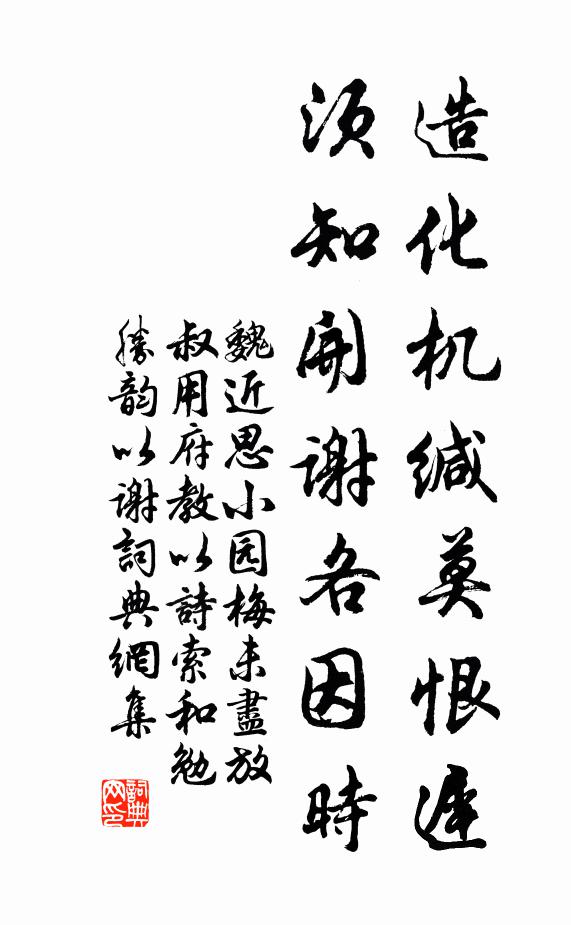 造化机缄莫恨遲
须知開谢各因時
魏近思小园梅未盡放
叔用府教以詩索和勉
勝韵以谢詞典網集
詞典
网印